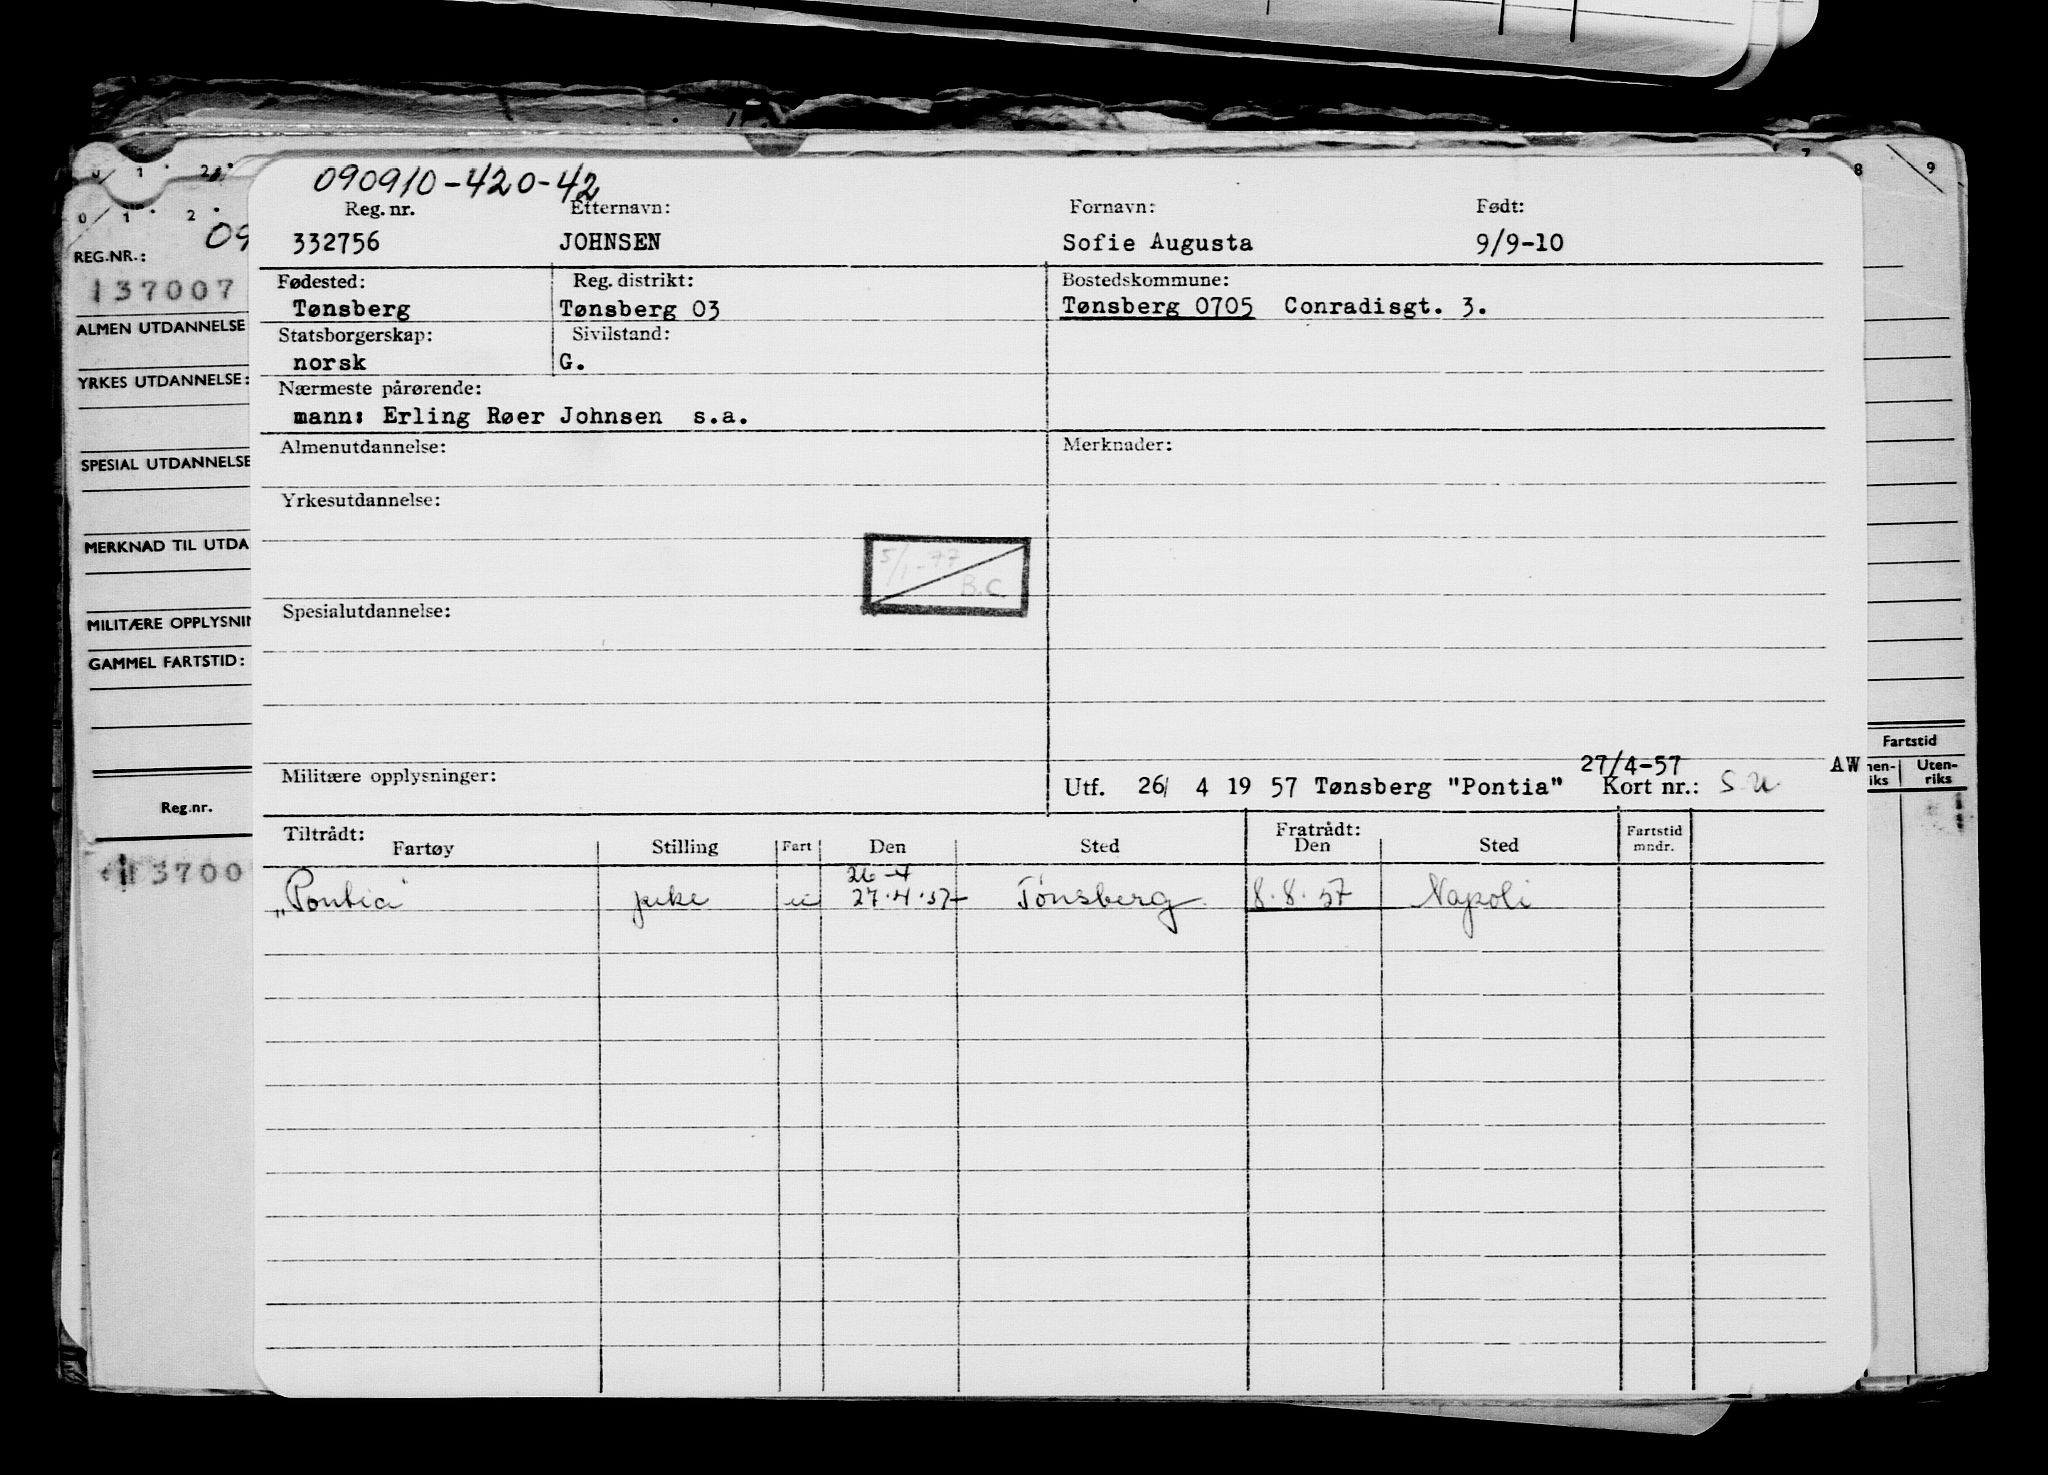 090910-420-42
Reg. nr. Etternavn: Fornavn: Født:
332756 JOHNSEN Sofie Augusta 9/9-10
Fødested: Reg. distrikt: Bostedskommune:
Tønsberg Tønsberg 03 Tønsberg 0705 Conradisgt. 3.
Statsborgerskap: Sivilstand:
norsk G.
Nærmeste pårørende:
mann: Erling Røer Johnsen s.a.
Almenutdannelse: Merknader:
Yrkesutdannelse:
5/1-77
B.C.
Spesialutdannelse:
27/4-57 AW
Militære opplysninger: Utf. 26/ 4 19 57 Tønsberg "Pontia" Kort nr.: S.U.
Tiltrådt: Fratrådt:
Fartøy Stilling Fart Den Sted Den Sted Fartstid mndr.
26-4
"Pontia" pike u 27.4.57 Tønsberg 8.8.57 Napoli
0 1 2
0 1 2
09
REG.NR.:
137007
ALMEN UTDANNELSE
YRKES UTDANNELSE:
SPESIAL UTDANNELSE
MERKNAD TIL UTDA
MILITÆRE OPPLYSNIN
GAMMEL FARTSTID:
Reg.nr.
13700
7 8 9
Fartstid
nen-
iks
Uten-
riks